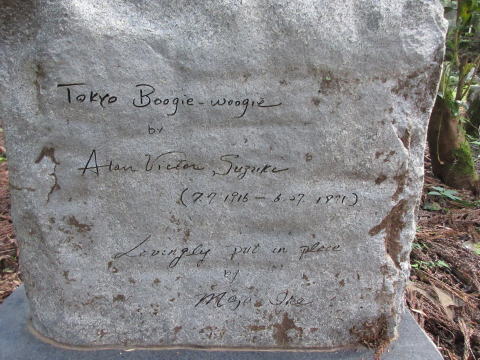 Tokyo Boogie-woogie
by
Alan Victor Suzuki
(7.9.1916 - 6.27.1971)
Lovingly put in place
by